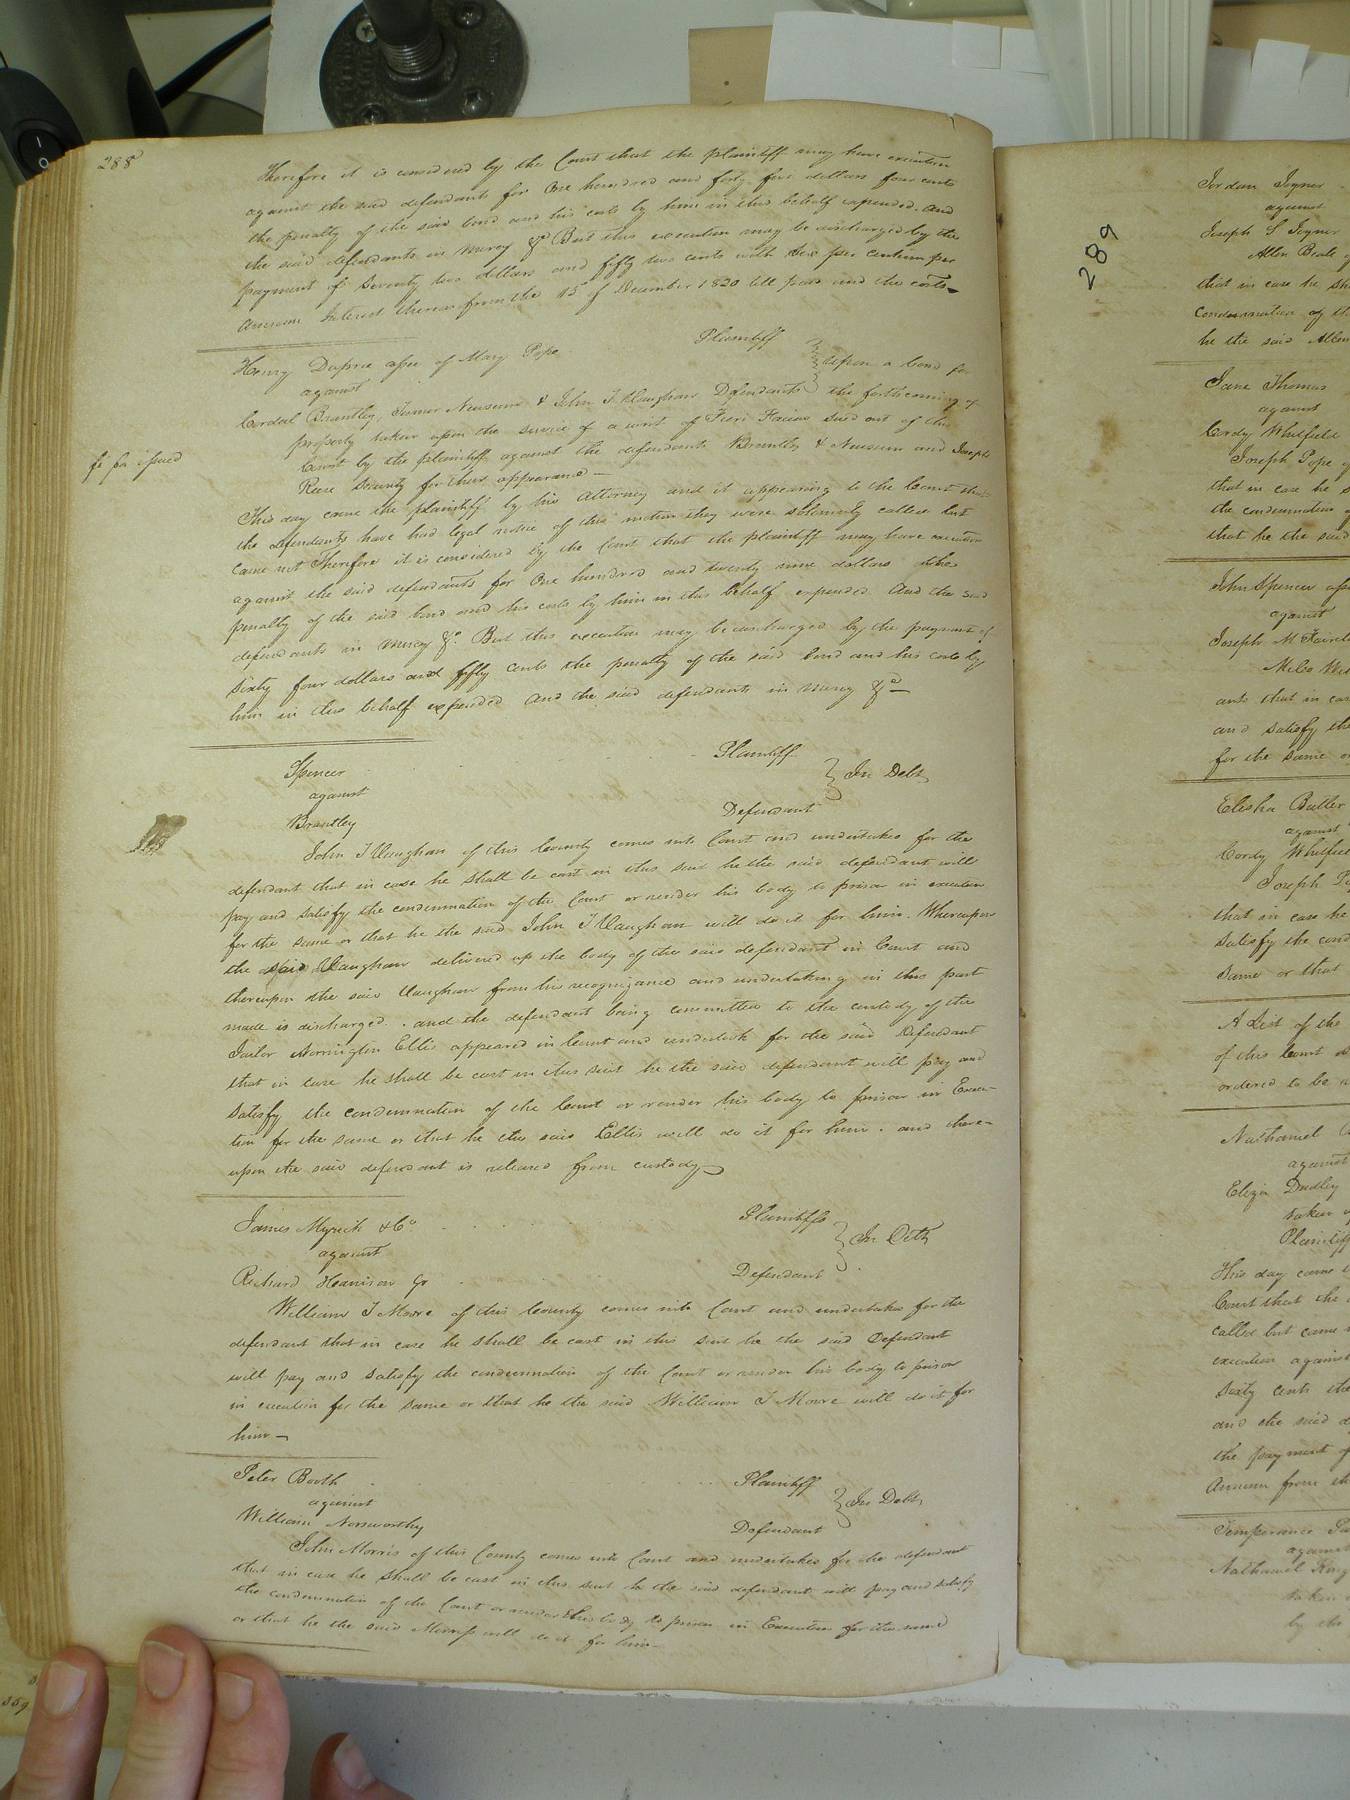 288
Therefore it is considered by the Court that the plaintiff may have execution
against the said defendants for One hundred and forty five dollars four cents
the penalty of the said bond and his costs by him in this behalf expended. And
the said defendants in mercy &c But this execution may be discharged by the
payment of Seventy two dollars and fifty two cents with Six per centum per
annum Interest thereon from the 15th of December 1820 till paid and the costs
Henry Dupree assee of Mary Pope Plaintiff
against
upon a bond for
Cordal Brantley, Turner Newsum & John T Vaughan Defendants the forthcoming of
property taken upon the service of a writ of Fieri Facias sued out of this
Court by the plaintiff against the defendants Brantley & Newsum and Joseph
fi fa issued
Reese Security for their appearance
This day came the plaintiff by his Attorney and it appearing to the Court that
the defendants have had legal notice of this motion they were solemnly called but
came not Therefore it is considered by the Court that the plaintiff may have execution
against the said defendants for One hundred and twenty nine dollars the
penalty of the said bond and his costs by him in this behalf expended And the said
defendants in mercy &c. But this execution may be discharged by the payment of
Sixty four dollars and fifty cents the penalty of the said bond and his costs by
him in this behalf expended And the said defendants in mercy &c
Spencer Plaintiff
against
In Debt
Brantley Defendant
John T Vaughan of this County comes into Court and undertakes for the
defendant that in case he shall be cast in this suit he the said defendant will
pay and satisfy the condemnation of the Court or render his body to prison in execution
for the same or that he the said John T Vaughan will do it for him. Whereupon
the said Vaughan delivered up the body of the said defendant in Court and
thereupon the said Vaughan from his recognizance and undertaking in this part
made is discharged. and the defendant being committed to the custody of the
Jailor Norrington Ellis appeared in Court and undertook for the said Defendant
that in case he shall be cast in this suit he the said defendant will pay and
satisfy the condemnation of the Court or render his body to prison in Execu-
tion for the same or that he the said Ellis will do it for him. and there-
upon the said defendant is released from custody
James Myrick & Co Plaintiffs
against
In Debt
Richard Harrison Jr Defendant
William T Moore of this County comes into Court and undertakes for the
defendant that in case he shall be cast in this suit he the said Defendant
will pay and satisfy the condemnation of the Court or render his body to prison
in execution for the same or that he the said William T Moore will do it for
him
Peter Booth Plaintiff
against
In Debt
William Norsworthy Defendant
John Morris of this County comes into Court and undertakes for the defendant
that in case he shall be cast in this suit he the said defendant will pay and satisfy
the condemnation of the Court or render his body to prison in Execution for the same
or that he the said Morris will do it for him
289
Jordan Joyner
against
Joseph S Joyner
Allen Beale
that in case he sh
condemnation of th
he the said Allen
Jane Thomas
against
Cordy Whitfield
Joseph Pope
that in case he s
the condemnation
that he the said
John Spencer
against
Joseph M
Miles
ants that in cas
and satisfy the
for the same o
Elisha Butler
against
Cordy Whitfiel
Joseph
that in case he
satisfy the cond
same or that
A List of the
of this Court
ordered to be
Nathaniel
against
Eliza Dudley
taken
Plaintiff
This day came
Court that the
called but came
execution against
sixty cents the
and the said d
the payment of
Annum from th
Temperance
against
Nathaniel
taken
by the
359